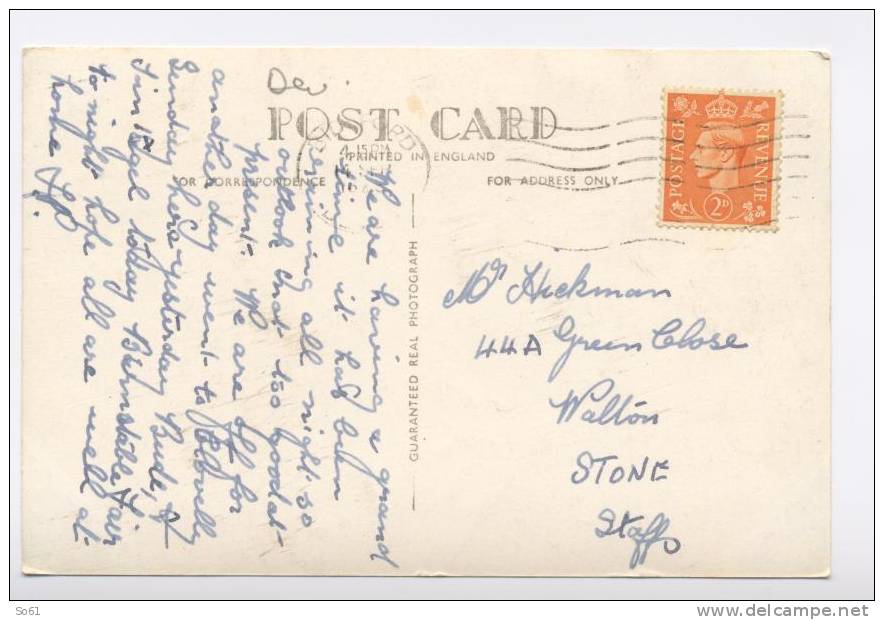 De
POST CARD
PRINTED IN ENGLAND
FOR CORRESPONDENCE
FOR ADDRESS ONLY
GUARANTEED REAL PHOTOGRAPH
POSTAGE REVENUE
2D
We are having a grand
time it has been
raining all night so
outlook not too good at
present. We are off for
another day went to Clovelly
Sunday here yesterday Bude, &
Tintagel today Barnstable Fair
to night hope all are well at
home
Mr Hickman
44A Green Close
Walton
STONE
Staffs
So61
http://www.delcampe.net